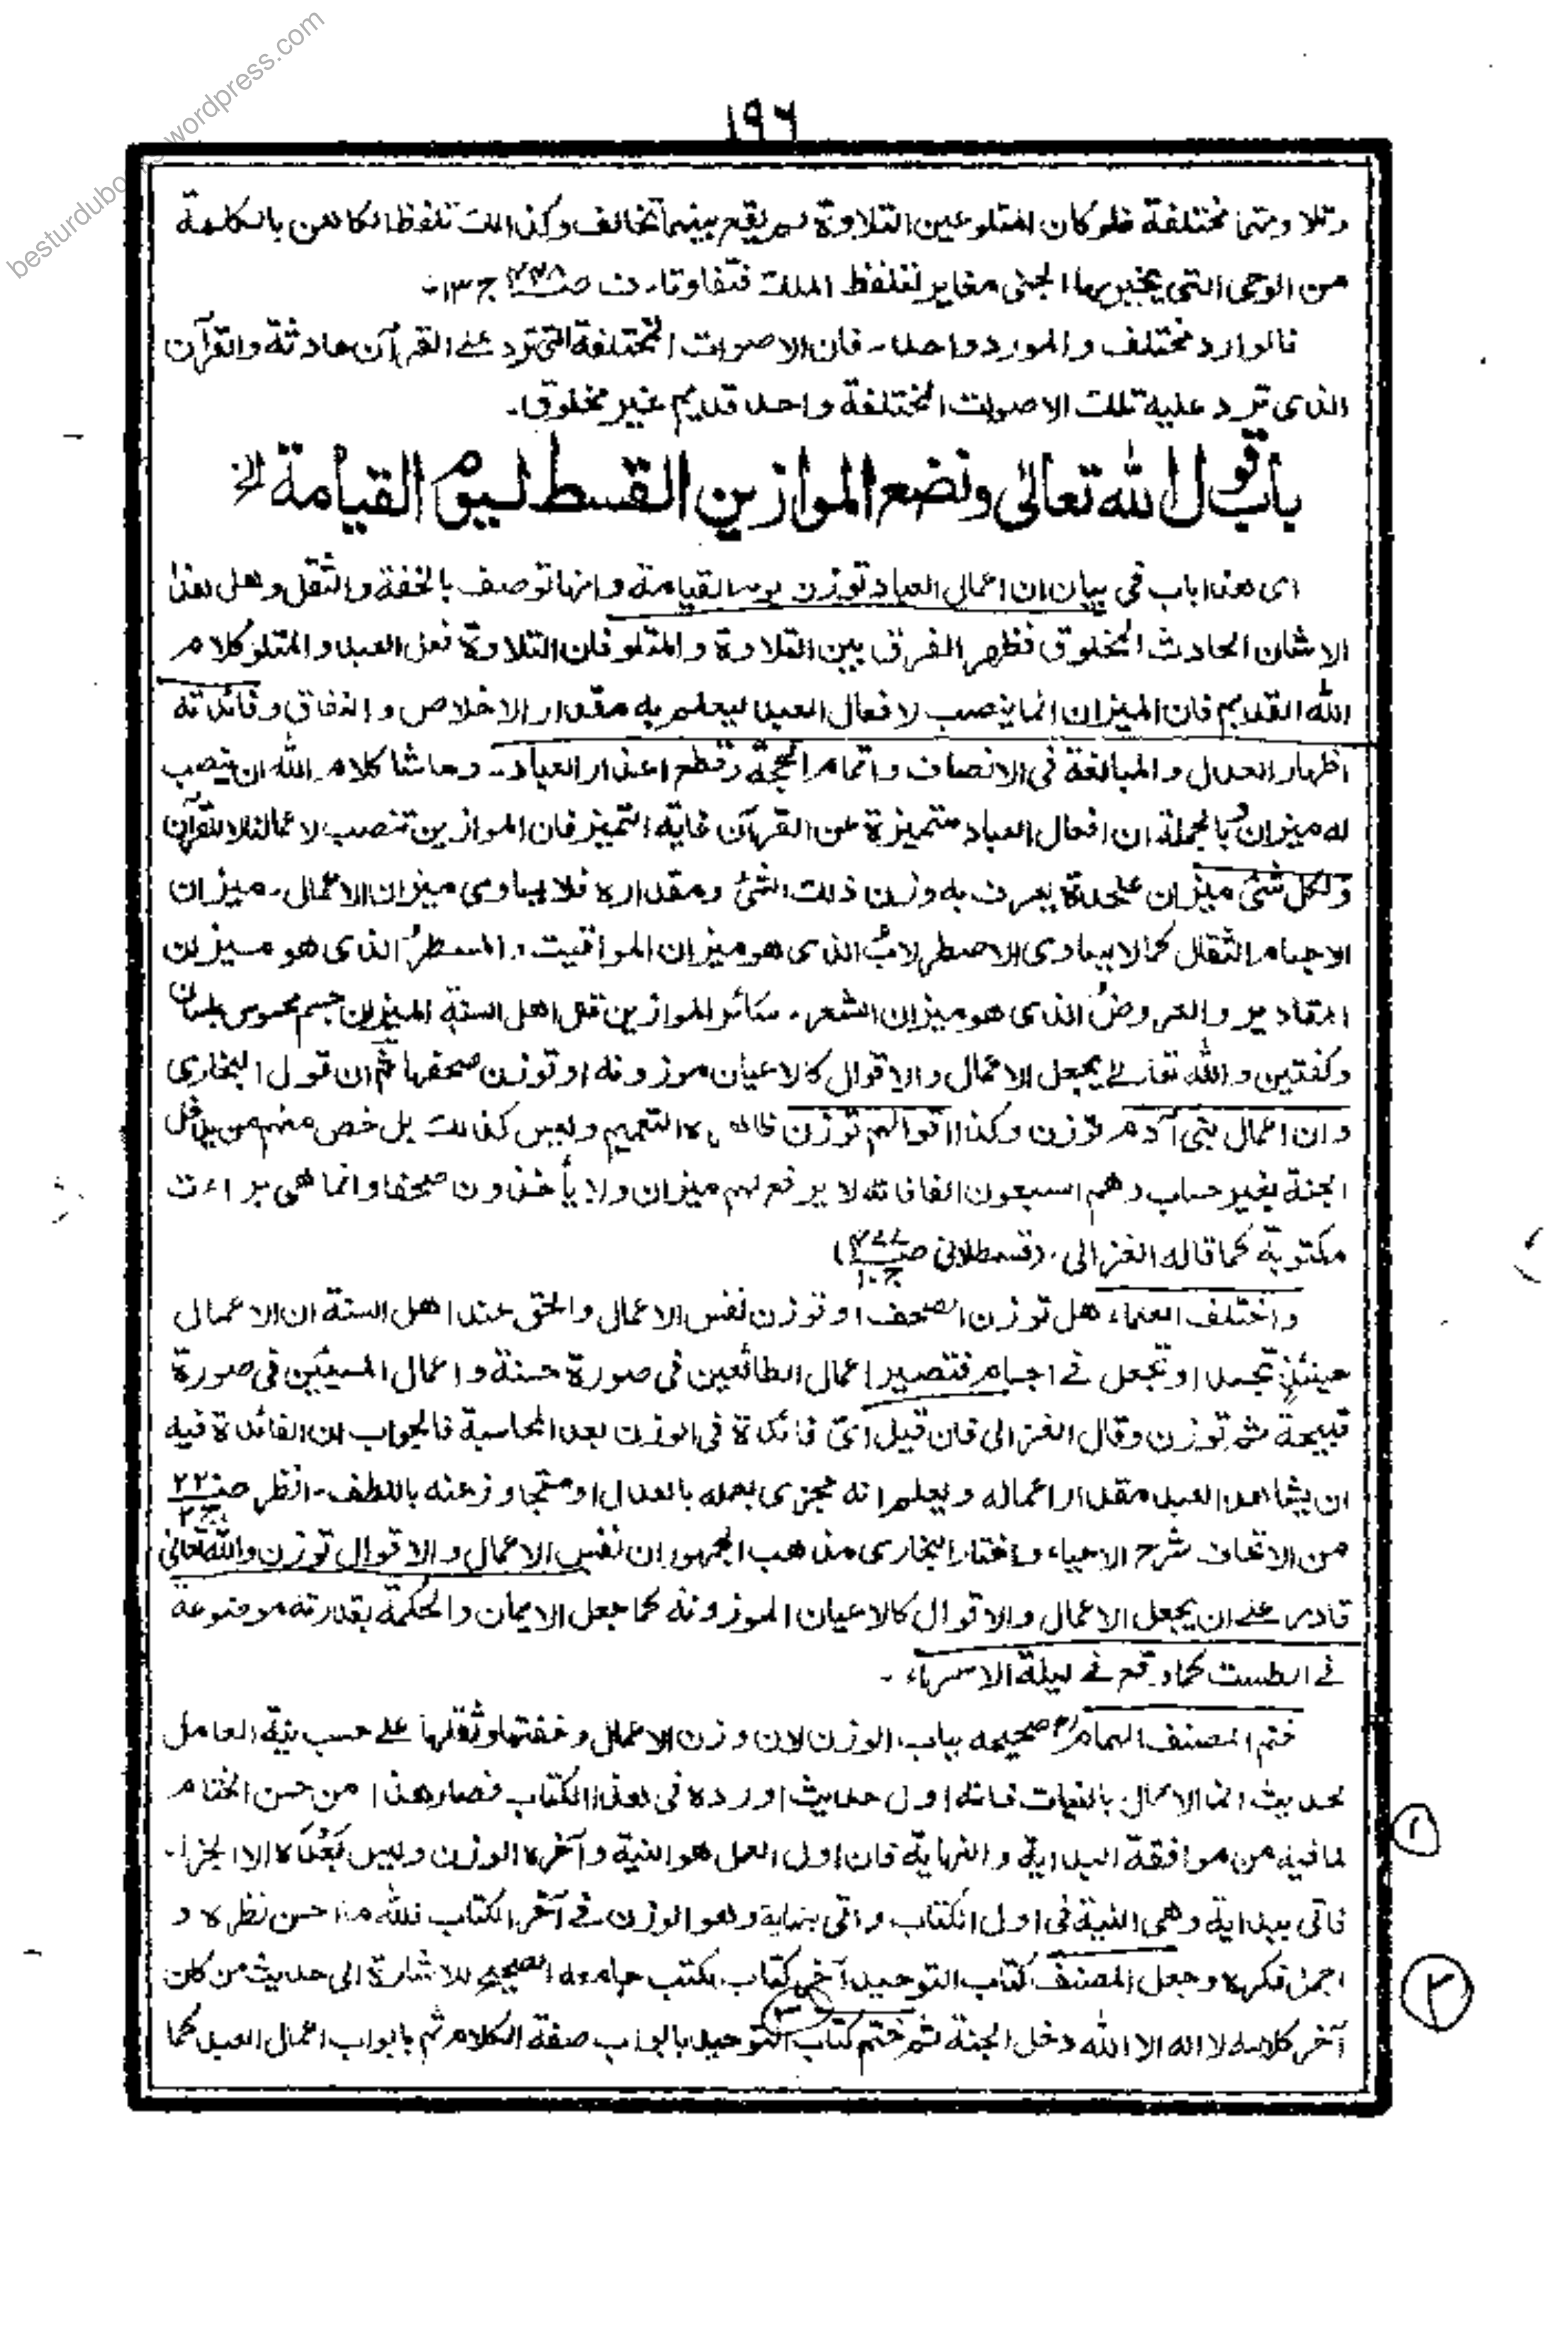 besturdubooks.wordpress.com
١٩٦
وتلاوتها مختلفة فلو كان المتلو عين التلاوة لم يقع بينهما تخالف وكذالك تلفظ الكاهن بالكلمة
من الوحى التى يخبر بها الجنى مغاير لتلفظ الملك فتفاوتا ج ١٣
فالوارد مختلف والمورد واحد ـ فان الاصوات المختلفة التى ترد على القرآن حادثة والقرآن
الذى ترد عليه تلك الاصوات المختلفة واحد قديم غير مخلوق ـ
باب قول الله تعالى ونضع الموازين القسط ليوم القيامة الخ
اى هذا باب فى بيان ان اعمال العباد توزن يوم القيامة وانها توصف بالخفة والثقل وهل هذا
الا شان الحادث المخلوق فظهر الفرق بين التلاوة والمتلو فان التلاوة فعل العبد والمتلو كلام
الله القديم فان الميزان انما ينصب لافعال العبد ليعلم به مقدار الاخلاص والنفاق وفائدته
اظهار العدل والمبالغة فى الانصاف واتمام الحجة وقطع اعذار العباد ـ وحاشا كلام الله ان ينصب
له ميزان وبالجملة ان افعال العباد متميزة عن القرآن غاية التميز فان الموازين تنصب لاعمالنا لا للقرآن
ولكل شئ ميزان علحدة يعرف به وزن ذلك الشئ ومقداره فلا يساوى ميزان الاعمال ـ ميزان
الاجسام الثقال كما لا يساوى الاصطرلاب الذى هو ميزان المواقيت والمسطر الذى هو ميزان
المقادير والعروض الذى هو ميزان الشعر ـ سائر الموازين قال اهل السنة الميزان جسم محسوس بلسان
وكفتين والله تعالى يجعل الاعمال والاقوال كالاعيان موزونة او توزن صحفها ثم ان قول البخارى
وان اعمال بنى آدم توزن وكذا اقوالهم توزن التعميم وليس كذلك بل خص منهم من يدخل
الجنة بغير حساب وهم السبعون الفا فانه لا يرفع لهم ميزان ولا يأخذون صحفا وانما هى براءت
مكتوبة كما قاله الغزالى ـ (قسطلانى ج ١٠)
واختلف العلماء هل توزن الصحف او توزن نفس الاعمال والحق عند اهل السنة ان الاعمال
حينئذ تجسد او تجعل فى اجسام فتصير اعمال الطائعين فى صورة حسنة واعمال المسيئين فى صورة
قبيحة ثم توزن وقال الغزالى فان قيل اى فائدة فى الوزن بعد المحاسبة فالجواب ان الفائدة فيه
ان يشاهد العبد مقدار اعماله ويعلم انه مجزى بعمله بالعدل او متجاوز عنه باللطف ـ انظر صـ ٢٢ ج ٢
من الاتحاف شرح الاحياء واختار البخارى مذهب الجمهور ان نفس الاعمال والاقوال توزن والله تعالى
قادر على ان يجعل الاعمال والاقوال كالاعيان الموزونة كما جعل الايمان والحكمة بقدرته موضوعة
فى الطست كما وقع فى ليلة الاسراء ـ
ختم المصنف الهمام صحيحه بباب الوزن لان وزن الاعمال وخفتها وثقلها على حسب نية العامل
لحديث انما الاعمال بالنيات فانه اول حديث اورده فى هذا الكتاب فصار هذا من حسن الختام
لما فيه من موافقة البداية والنهاية فان اول العمل هو النية وآخره الوزن وليس بعده الا الجزاء
فاتى ببداية وهى النية فى اول الكتاب واتى بنهاية وهو الوزن فى آخر الكتاب فلله ما احسن نظره و
اجمل فكره وجعل المصنف كتاب التوحيد آخر كتاب لكتب جامعه الصحيح للاشارة الى حديث من كان
آخر كلامه لا اله الا الله دخل الجنة ثم ختم كتاب التوحيد بابواب صفة الكلام ثم بابواب اعمال العبد كما
١
٢
٣